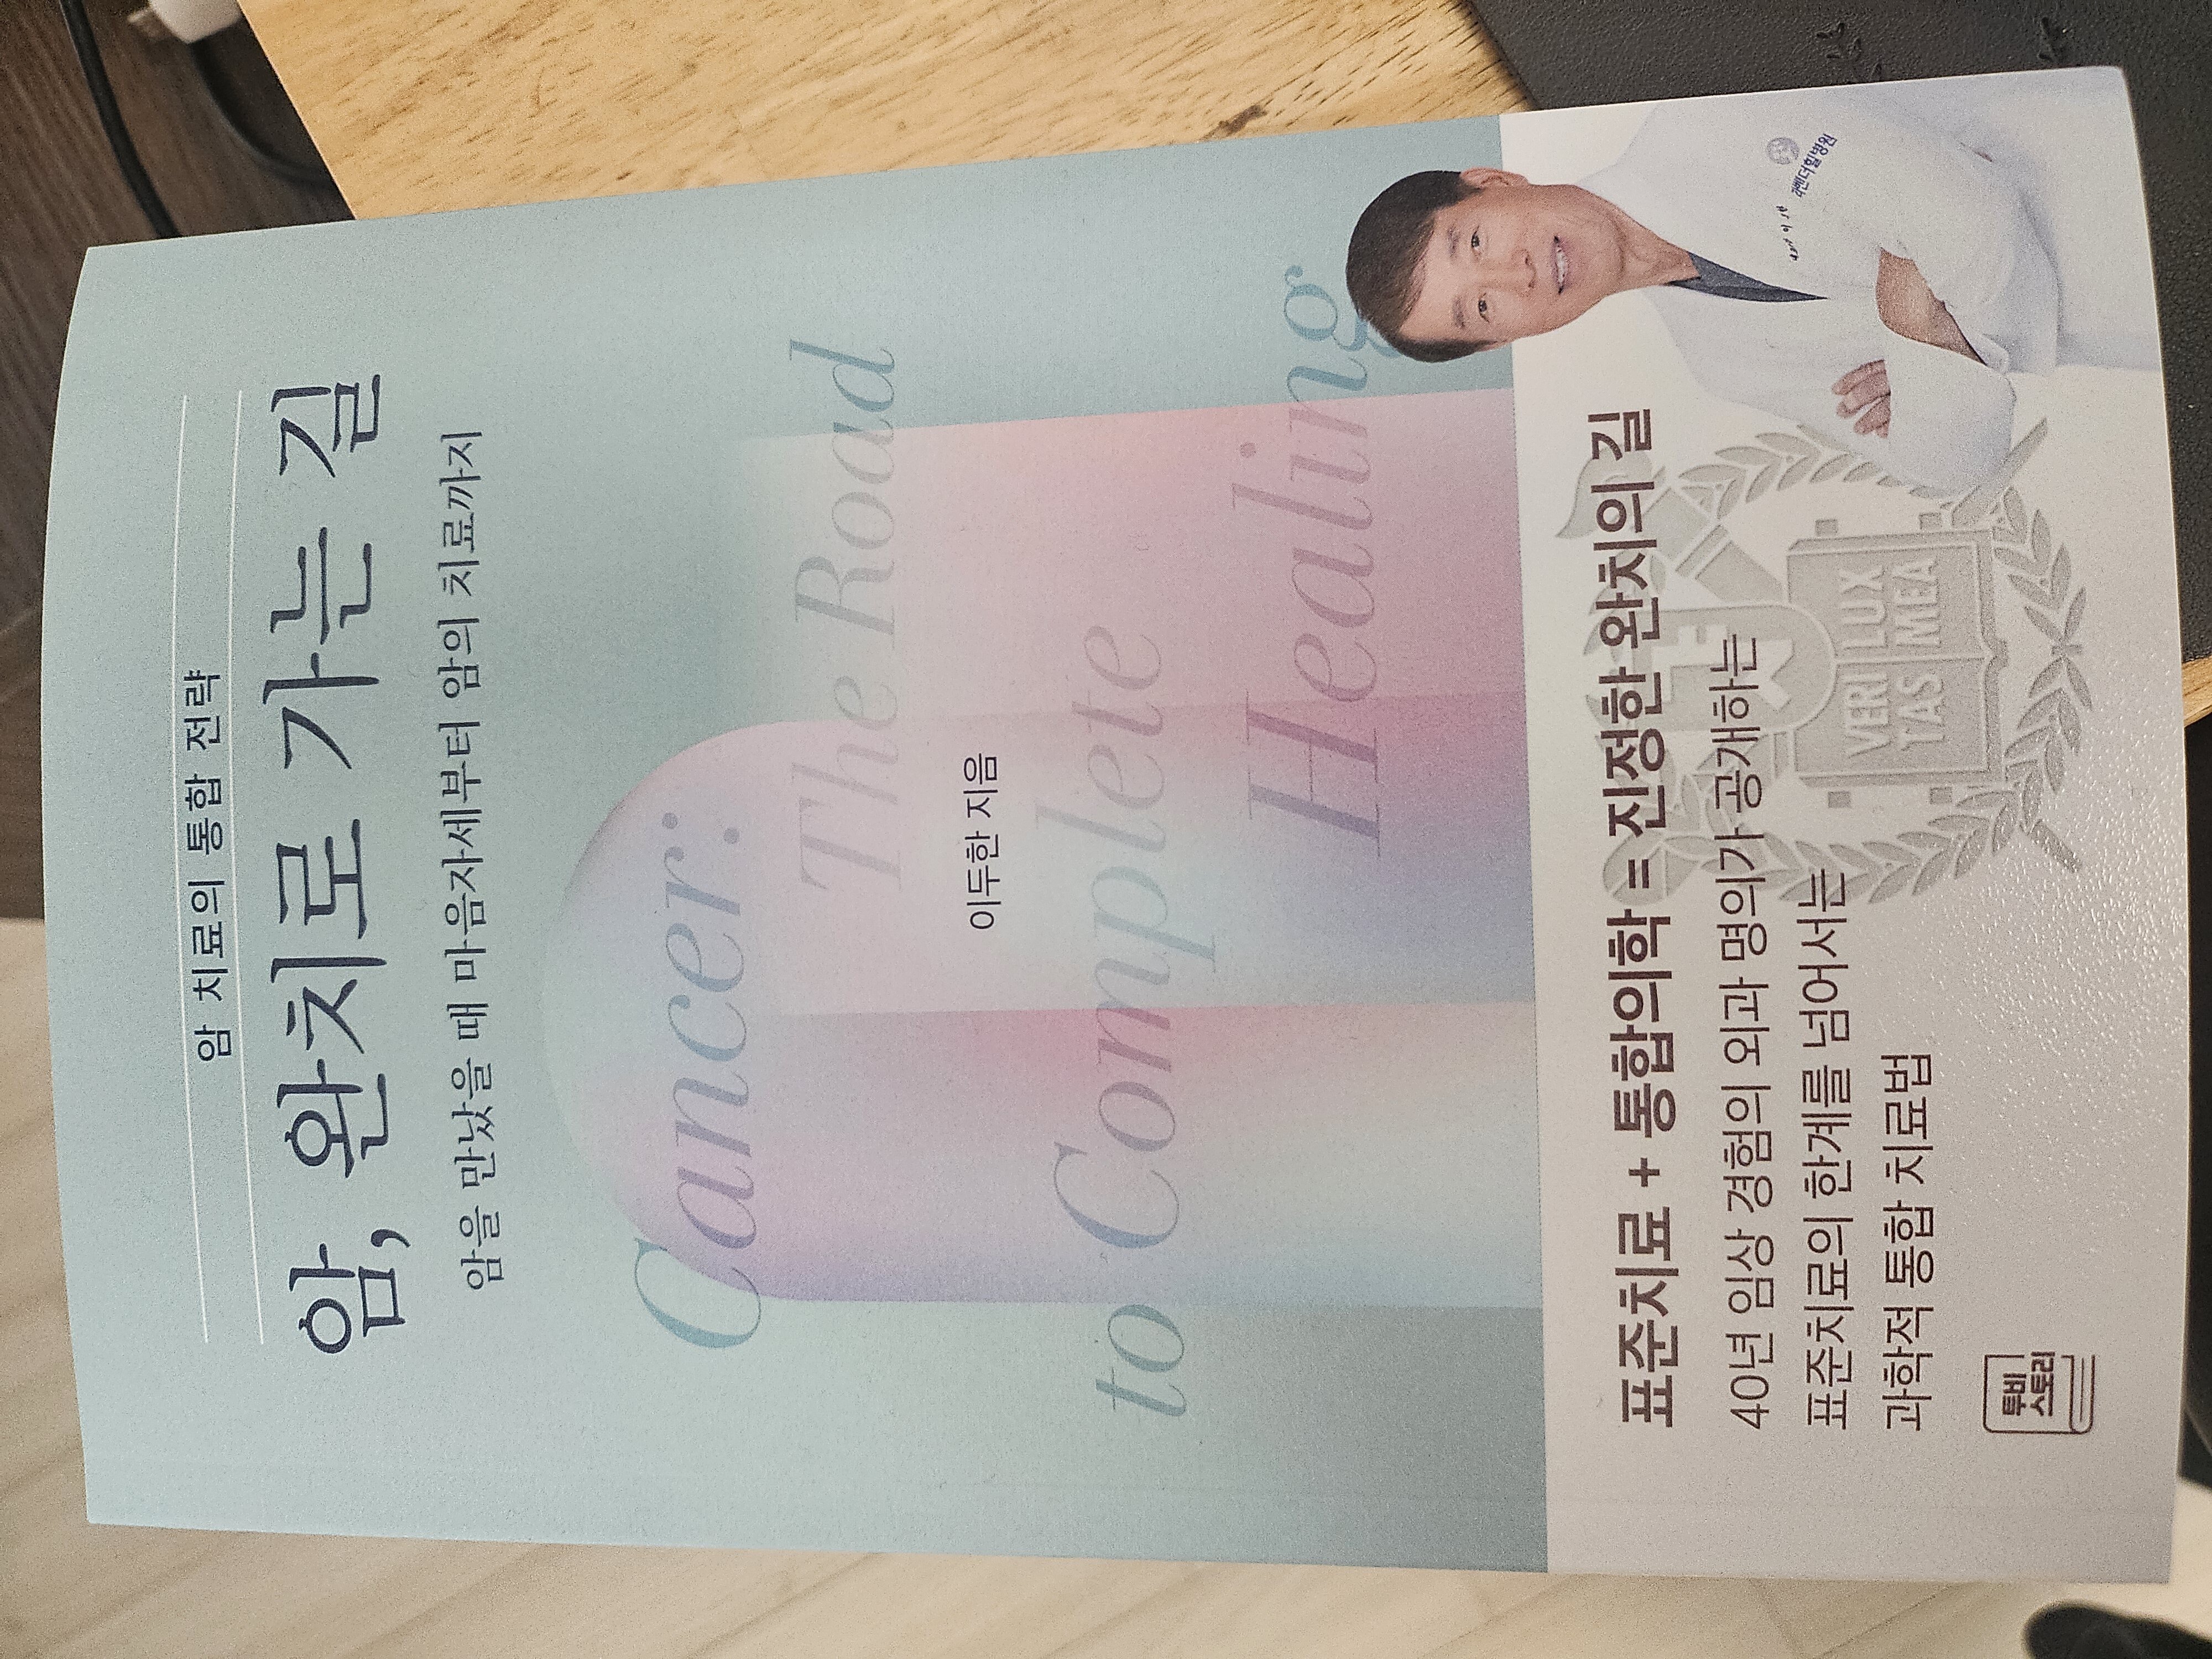 암 치료의 통합 전략
암, 완치로 가는 길
암을 만났을 때 마음자세부터 암의 치료까지
Cancer:
The Road
이두한 지음
to Complete
Healing
표준치료 + 통합의학 = 진정한 완치의 길
40년 임상 경험의 외과 명의가 공개하는
표준치료의 한계를 넘어서는
과학적 통합 치료법
VERI LUX
TAS MEA
라벤더힐병원
투비
스토리